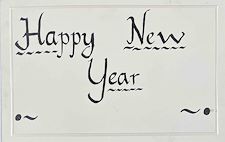 Happy New
Year